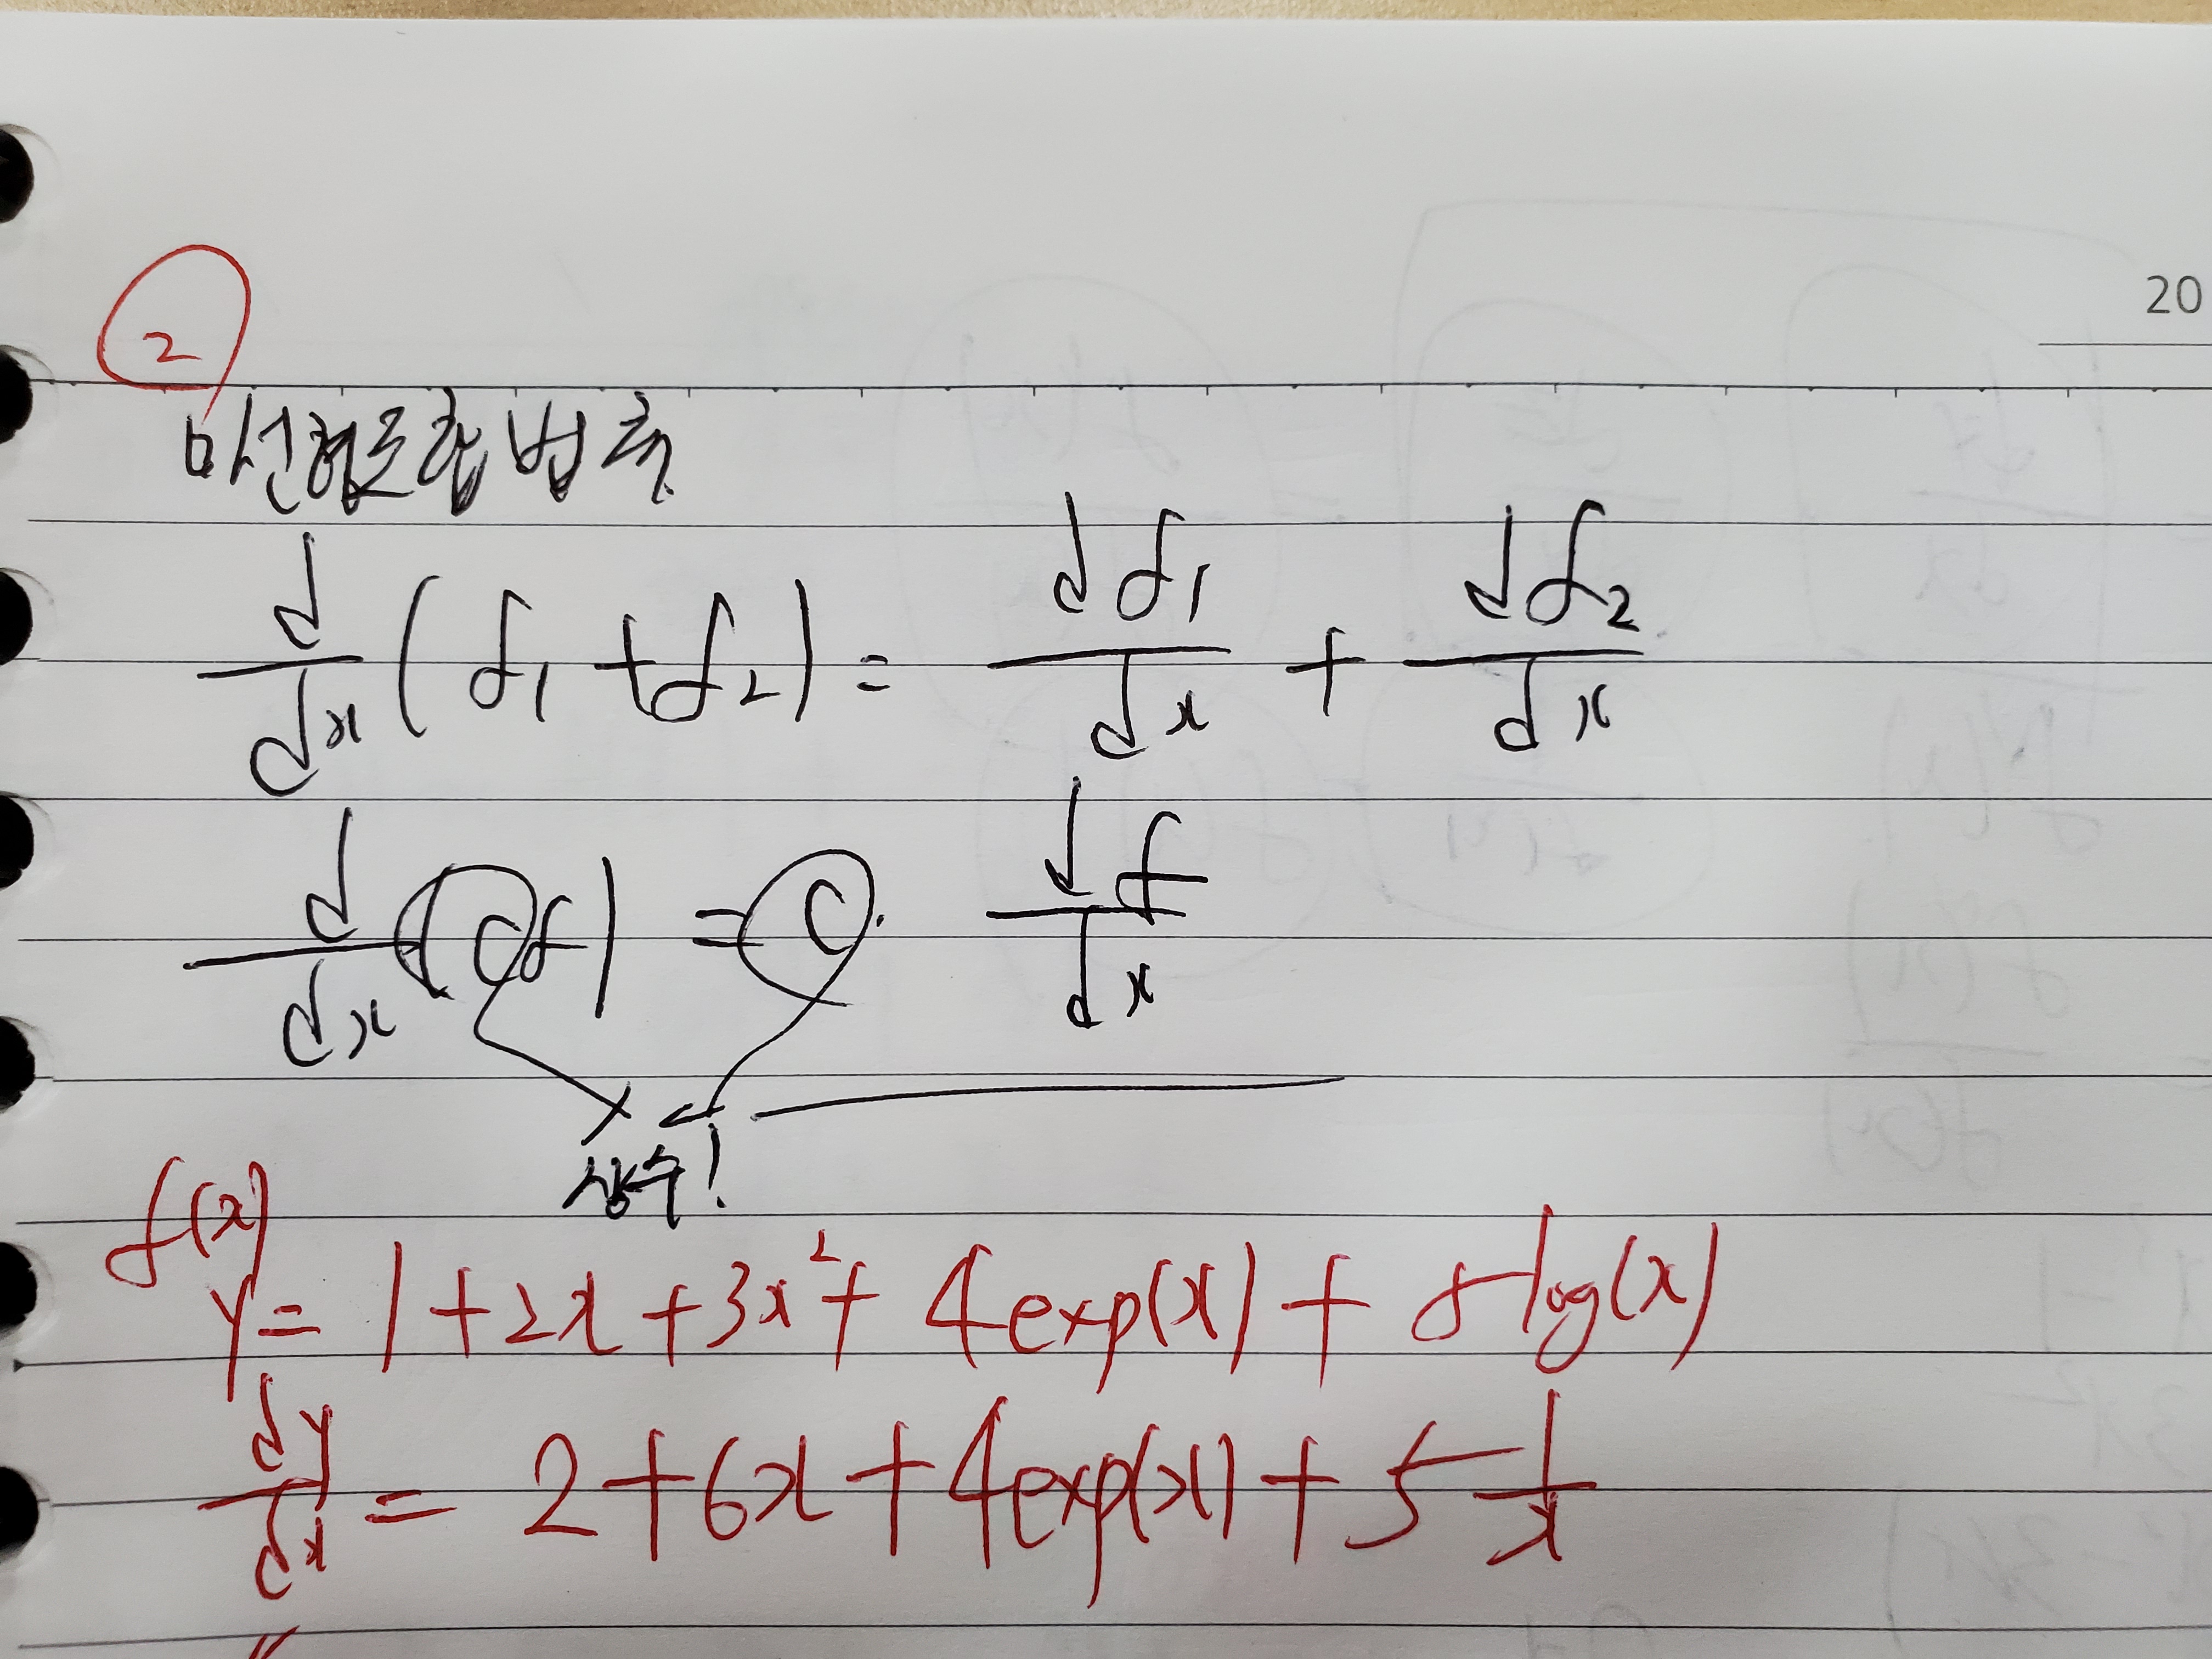 2
d/dx (f1 + f2) = df1/dx + df2/dx
d/dx (cf) = c · df/dx
f(x)
y = 1 + 2x + 3x² + 4exp(x) + 5log(x)
dy/dx = 2 + 6x + 4exp(x) + 5 1/x
20